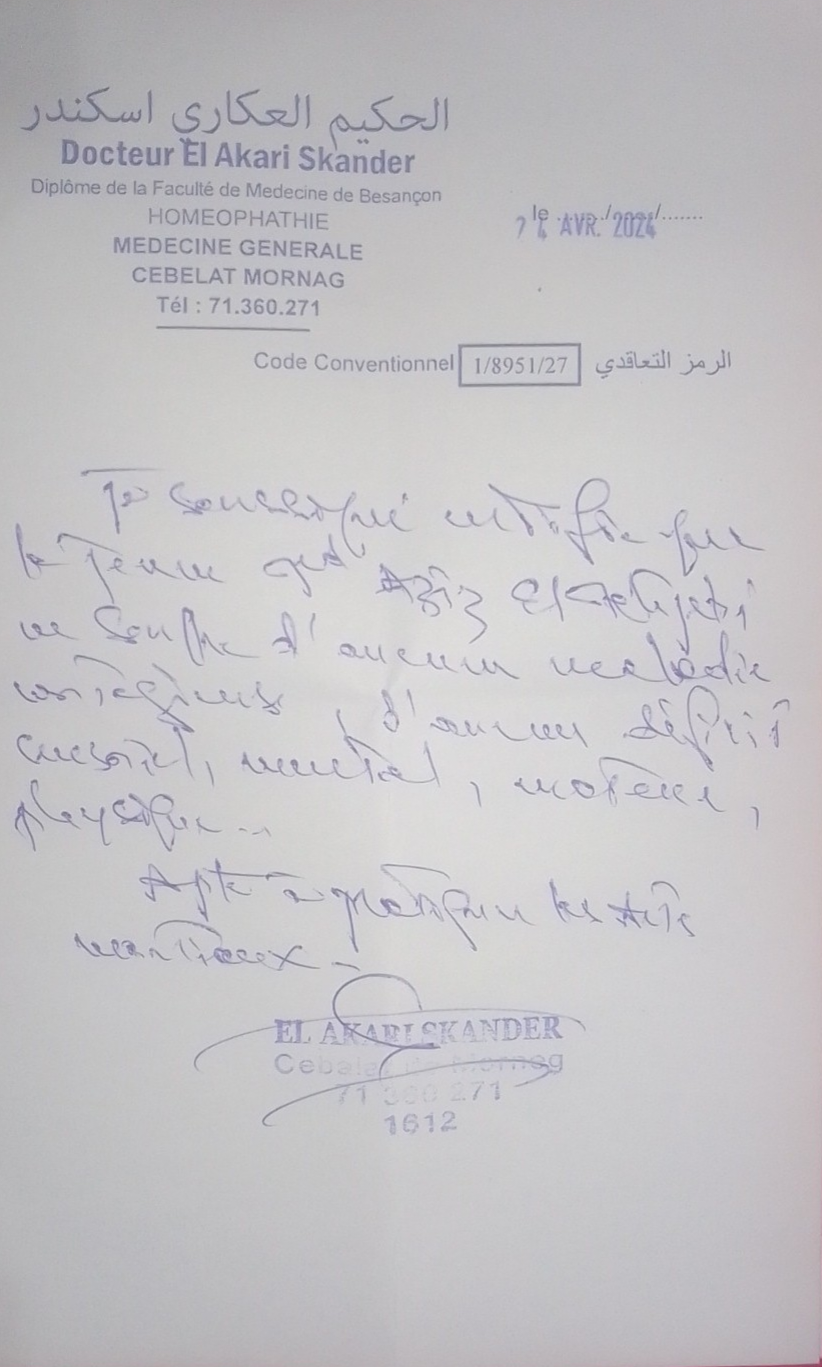 الحكيم العكاري اسكندر
Docteur El Akari Skander
Diplôme de la Faculté de Medecine de Besançon
HOMEOPHATHIE
MEDECINE GENERALE
CEBELAT MORNAG
Tél : 71.360.271
le 24 AVR. 2024
Code Conventionnel 1/8951/27 الرمز التعاقدي
Je soussigné certifie que
le jeune Aziz
ne souffre d'aucun maladie
contagieuse, d'aucun déficit
sensoriel, mental, moteur,
physique...
Apte à pratiquer les Arts
martiaux -
EL AKARI SKANDER
Cebalat de Mornag
71 360 271
1612